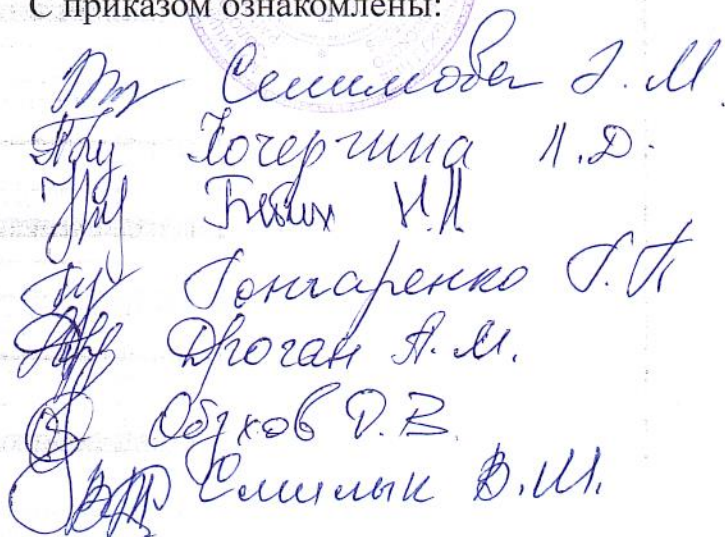 С приказом ознакомлены:
Селимова З. М.
Кочергина Л.Д.
Бебих Н.Н
Гончаренко Г.П
Дроган А.М.
Обухов Д.В.
Смилык В.И.